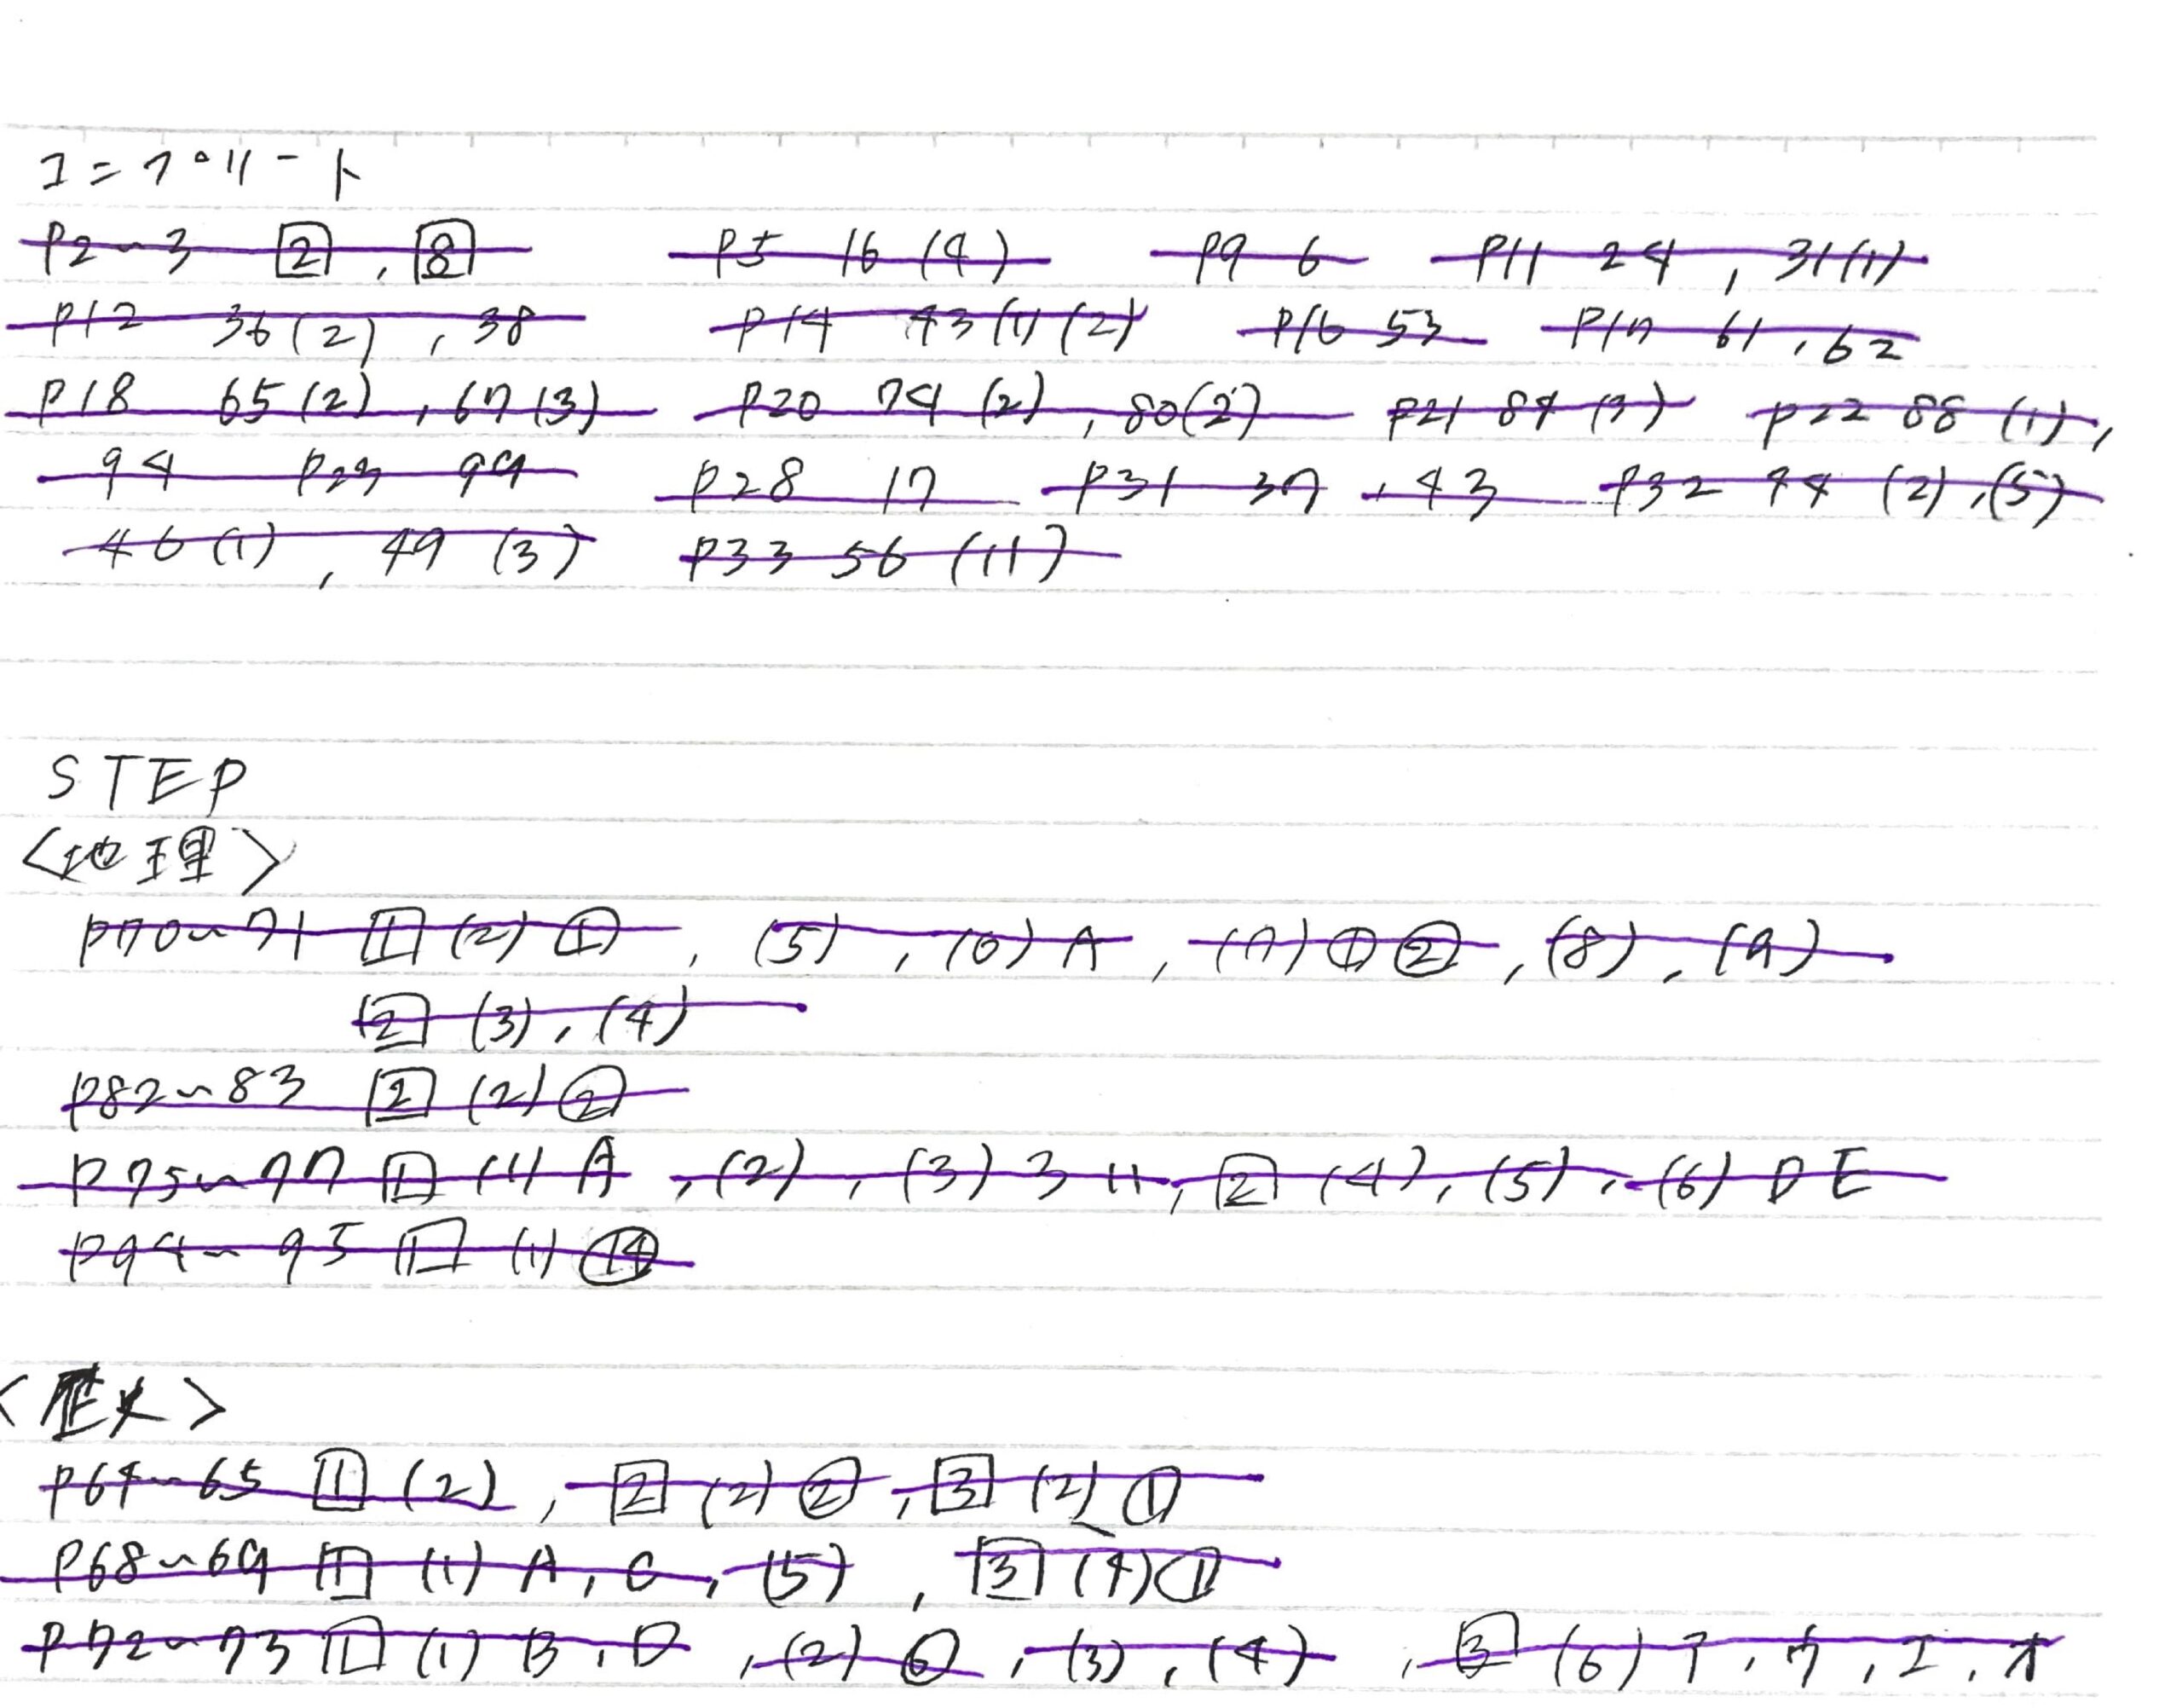 コニプリート
P2~3 2, 8 P5 16(4) P9 6 P11 24, 31(1)
P12 36(2), 38 P14 43(1)(2) P16 53 P17 61, 62
P18 65(2), 67(3) P20 74(2), 80(2) P21 84(3) P22 88(1),
94 P23 99 P28 17 P31 37, 43 P32 44(2), (5)
46(1), 49(3) P33 56(11)
STEP
<地理>
P70~71 1 (2)①, (5), (6)A, (7)①②, (8), (9)
2 (3), (4)
P82~83 2 (2)②
P75~77 1 (1)A, (2), (3) 2 (4), (5), (6)D E
P94~95 1 (1)⑭
<歴史>
P64~65 1 (2), 2 (2)②, 3 (2)①
P68~69 1 (1)A, C, (5), 3 (4)①
P72~73 1 (1)B, D, (2)⑥, (3), (4), 3 (6)ア, ウ, エ, オ